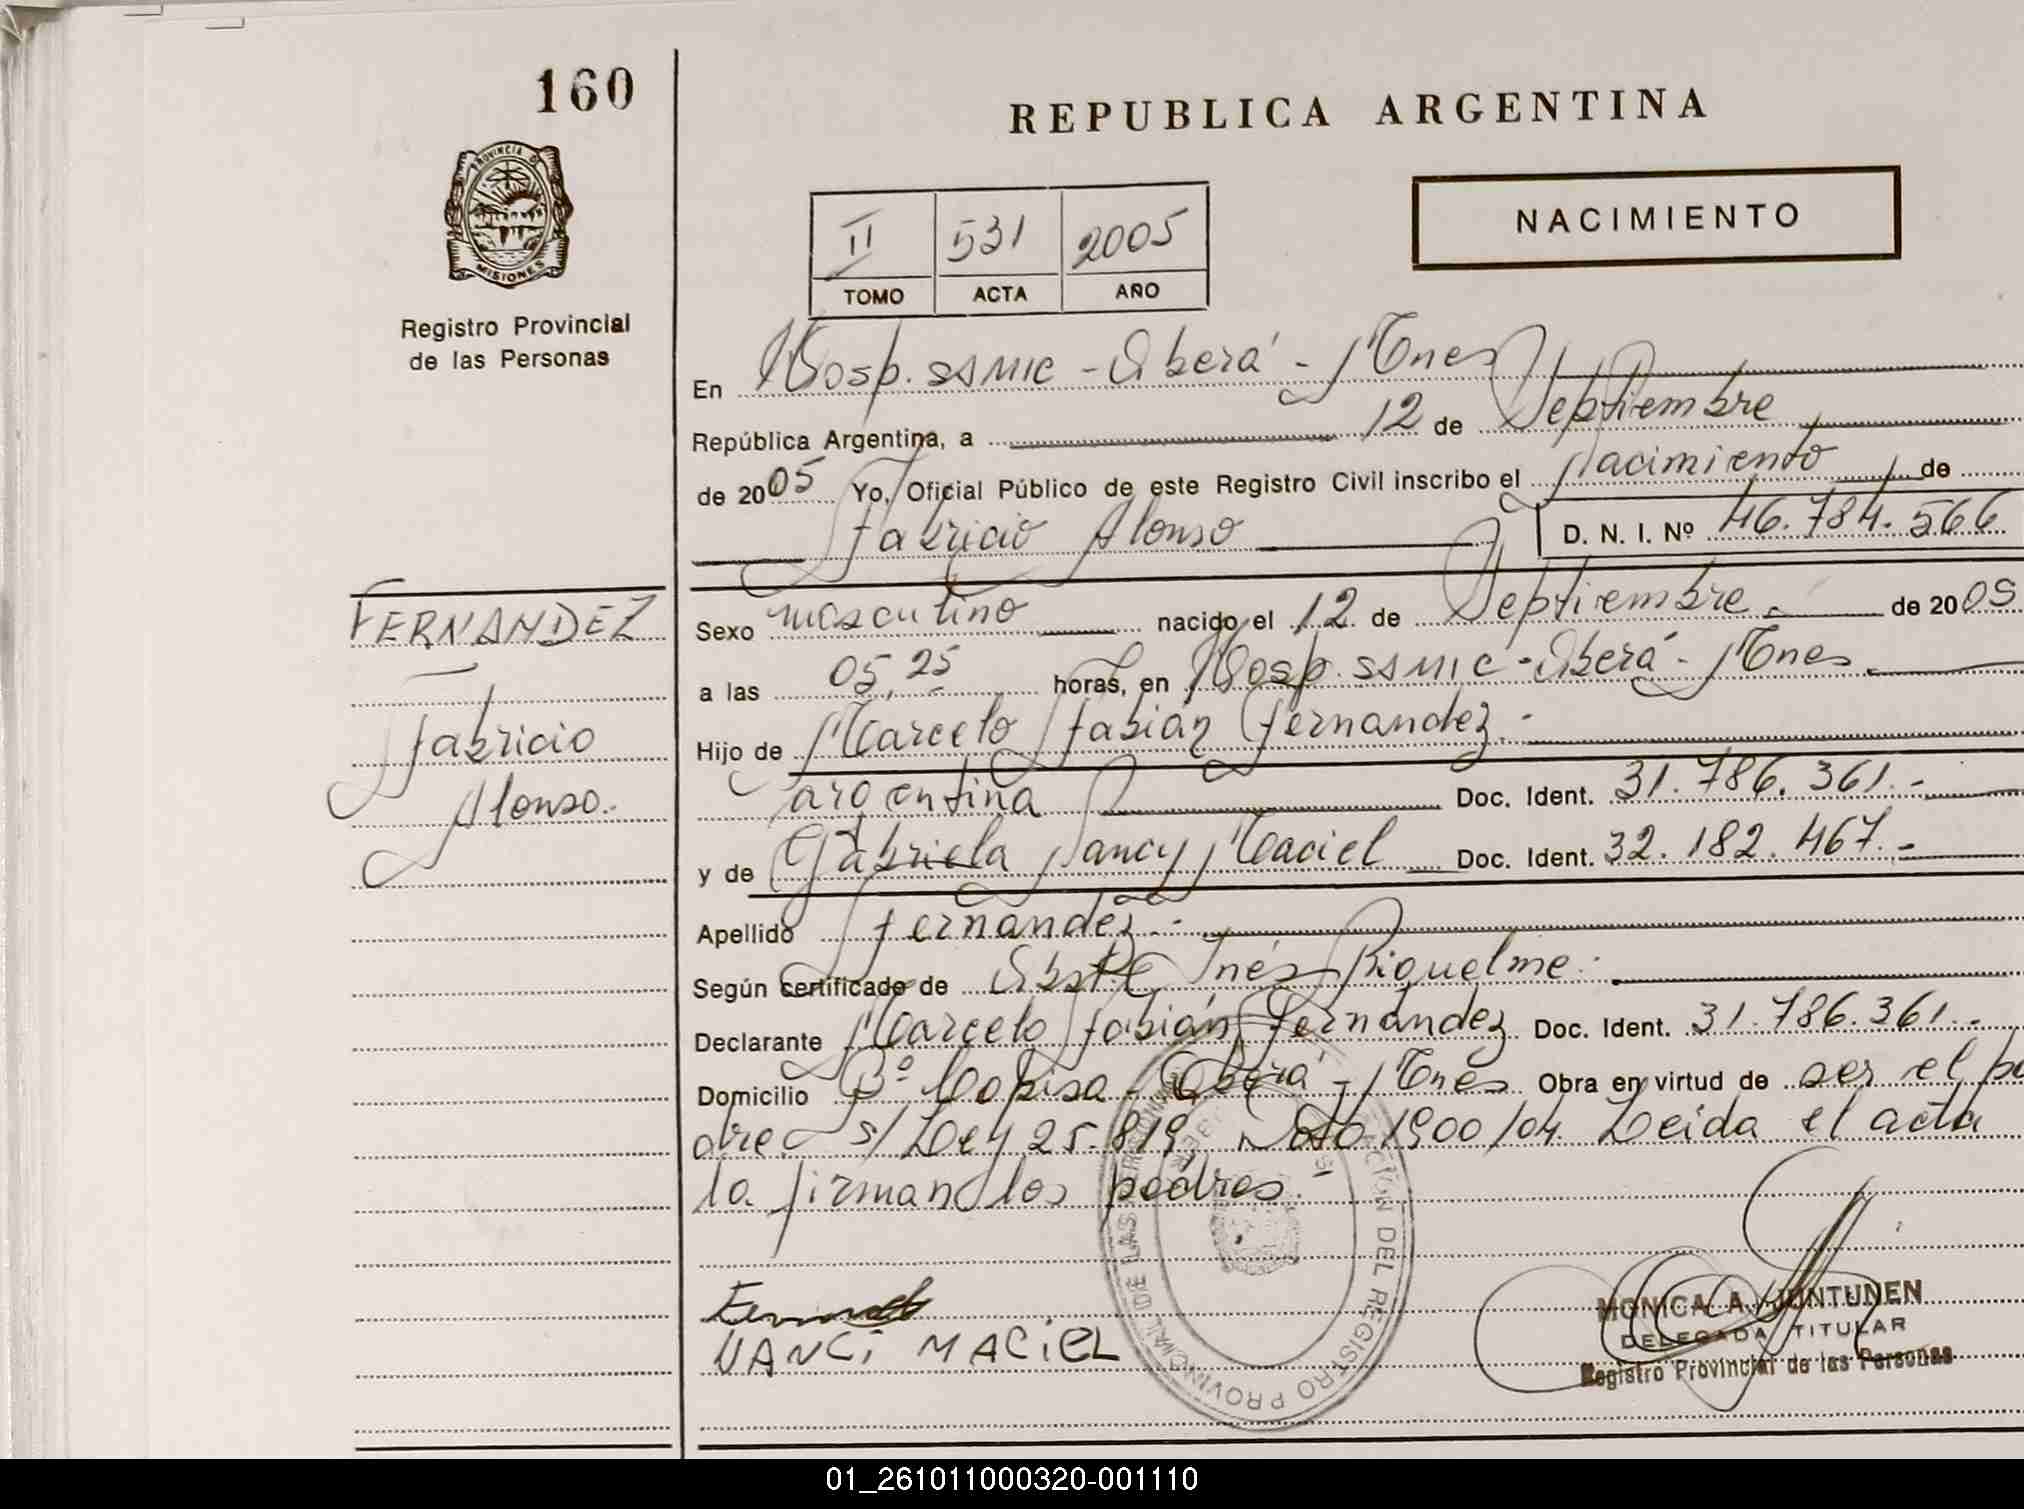 160
REPUBLICA ARGENTINA
PROVINCIA DE
MISIONES
Registro Provincial
de las Personas
II 531 2005
TOMO ACTA AÑO
NACIMIENTO
En Hosp. SAMIC - Oberá - Mnes
República Argentina, a 12 de Septiembre
de 2005 Yo, Oficial Público de este Registro Civil inscribo el Nacimiento de
Fabricio Alonso D. N. I. Nº 46.784.566
FERNANDEZ
Fabricio
Alonso.
Sexo masculino nacido el 12 de Septiembre de 2005
a las 05,25 horas, en Hosp. SAMIC - Oberá - Mnes.
Hijo de Marcelo Fabián Fernandez.-
argentina Doc. Ident. 31.786.361.-
y de Gabriela Nancy Maciel Doc. Ident. 32.182.467.-
Apellido Fernandez.-
Según certificado de Obst. Inés Riquelme.-
Declarante Marcelo Fabián Fernández Doc. Ident. 31.786.361.-
Domicilio Bº Copisa - Oberá - Mnes Obra en virtud de ser el pa
dre s/ Ley 25.819, Dto 1900/04. Leida el acta
la firman los padres.-
NANCi MACiEL
REGISTRO PROVINCIAL DE LAS PERSONAS
MONICA A. JUNTUNEN
DELEGADA TITULAR
Registro Provincial de las Personas
01_261011000320-001110